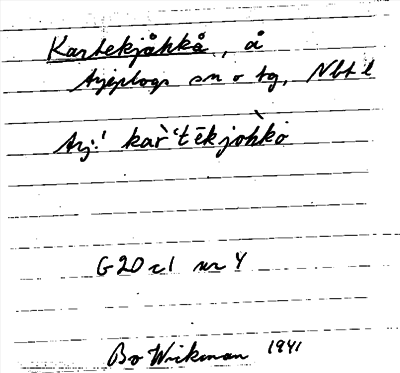 Kartekjåkkå, å
Arjeplogs sn o tg, Nbt l
Arj: kar̀'tēkjòhkò
G20 c1 nr 4
Bo Wickman 1941